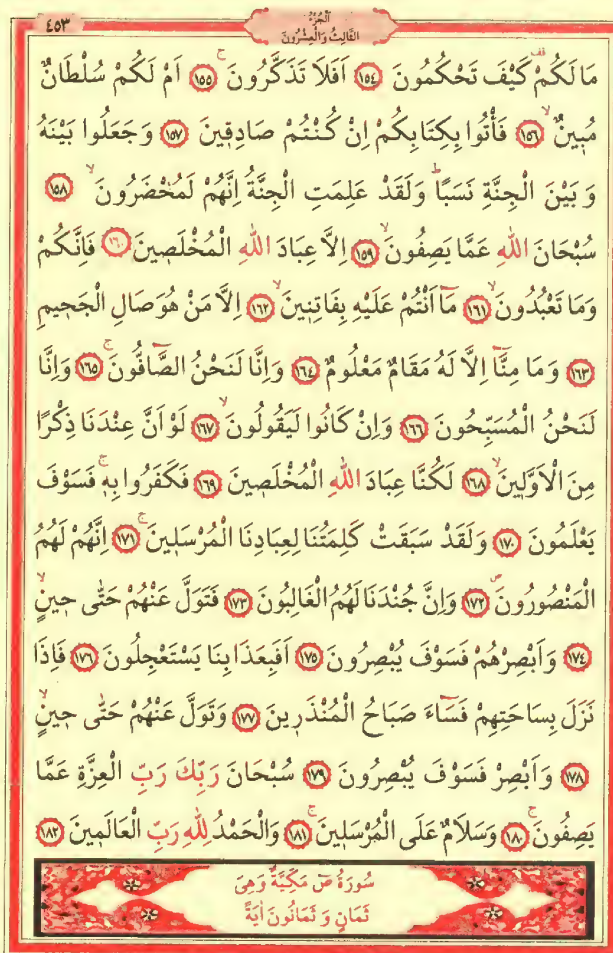 ٤٥٣
اَلْجُزْءُ
الثَّالِثُ وَالْعِشْرُونَ
مَا لَكُمْ كَيْفَ تَحْكُمُونَ ﴿١٥٤﴾ اَفَلَا تَذَكَّرُونَ ﴿١٥٥﴾ اَمْ لَكُمْ سُلْطَانٌ
مُبِينٌ ﴿١٥٦﴾ فَأْتُوا بِكِتَابِكُمْ اِنْ كُنْتُمْ صَادِقِينَ ﴿١٥٧﴾ وَجَعَلُوا بَيْنَهُ
وَبَيْنَ الْجِنَّةِ نَسَبًا وَلَقَدْ عَلِمَتِ الْجِنَّةُ اِنَّهُمْ لَمُحْضَرُونَ ﴿١٥٨﴾
سُبْحَانَ اللهِ عَمَّا يَصِفُونَ ﴿١٥٩﴾ اِلَّا عِبَادَ اللهِ الْمُخْلَصِينَ ﴿١٦٠﴾ فَاِنَّكُمْ
وَمَا تَعْبُدُونَ ﴿١٦١﴾ مَٓا اَنْتُمْ عَلَيْهِ بِفَاتِنِينَ ﴿١٦٢﴾ اِلَّا مَنْ هُوَ صَالِ الْجَحِيمِ
﴿١٦٣﴾ وَمَا مِنَّٓا اِلَّا لَهُ مَقَامٌ مَعْلُومٌ ﴿١٦٤﴾ وَاِنَّا لَنَحْنُ الصَّٓافُّونَ ﴿١٦٥﴾ وَاِنَّا
لَنَحْنُ الْمُسَبِّحُونَ ﴿١٦٦﴾ وَاِنْ كَانُوا لَيَقُولُونَ ﴿١٦٧﴾ لَوْ اَنَّ عِنْدَنَا ذِكْرًا
مِنَ الْاَوَّلِينَ ﴿١٦٨﴾ لَكُنَّا عِبَادَ اللهِ الْمُخْلَصِينَ ﴿١٦٩﴾ فَكَفَرُوا بِهِ فَسَوْفَ
يَعْلَمُونَ ﴿١٧٠﴾ وَلَقَدْ سَبَقَتْ كَلِمَتُنَا لِعِبَادِنَا الْمُرْسَلِينَ ﴿١٧١﴾ اِنَّهُمْ لَهُمُ
الْمَنْصُورُونَ ﴿١٧٢﴾ وَاِنَّ جُنْدَنَا لَهُمُ الْغَالِبُونَ ﴿١٧٣﴾ فَتَوَلَّ عَنْهُمْ حَتّٰى حِينٍ
﴿١٧٤﴾ وَاَبْصِرْهُمْ فَسَوْفَ يُبْصِرُونَ ﴿١٧٥﴾ اَفَبِعَذَابِنَا يَسْتَعْجِلُونَ ﴿١٧٦﴾ فَاِذَا
نَزَلَ بِسَاحَتِهِمْ فَسَٓاءَ صَبَاحُ الْمُنْذَرِينَ ﴿١٧٧﴾ وَتَوَلَّ عَنْهُمْ حَتّٰى حِينٍ
﴿١٧٨﴾ وَاَبْصِرْ فَسَوْفَ يُبْصِرُونَ ﴿١٧٩﴾ سُبْحَانَ رَبِّكَ رَبِّ الْعِزَّةِ عَمَّا
يَصِفُونَ ﴿١٨٠﴾ وَسَلَامٌ عَلَى الْمُرْسَلِينَ ﴿١٨١﴾ وَالْحَمْدُ لِلهِ رَبِّ الْعَالَمِينَ ﴿١٨٢﴾
سُورَةُ صٓ مَكِّيَّةٌ وَهِيَ
ثَمَانٍ وَ ثَمَانُونَ اٰيَةً